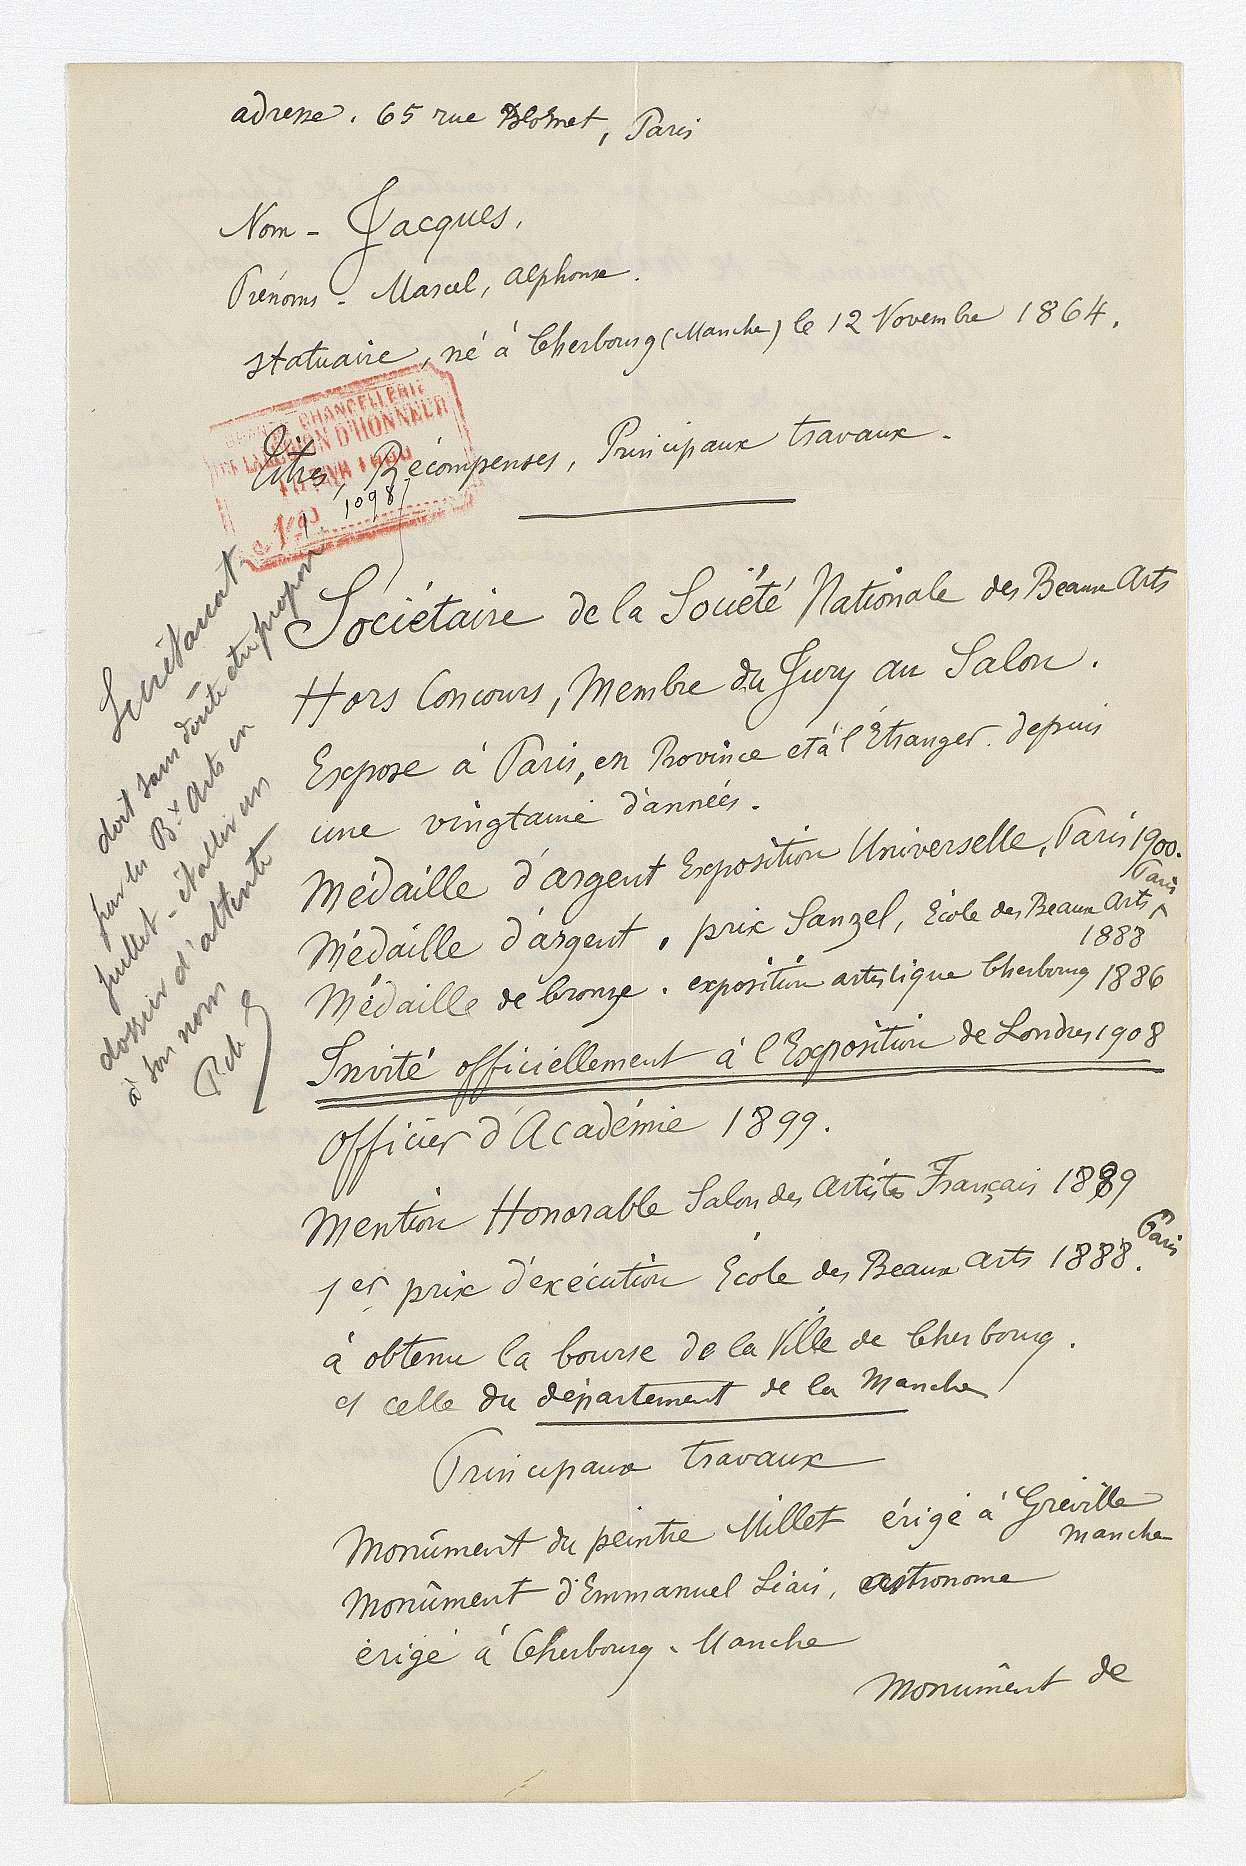 adresse. 65 rue Blomet, Paris
Nom - Jacques,
Prénoms - Marcel, Alphonse.
statuaire, né à Cherbourg (Manche) le 12 Novembre 1864.
CHANCELLERIE
DE LA LÉGION D'HONNEUR
1098
Titres, Récompenses, Principaux travaux.
Sociétaire de la Société Nationale des Beaux Arts
Hors Concours, Membre du Jury au Salon.
Expose à Paris, en Province et à l'Étranger. depuis
une vingtaine d'années.
Médaille d'argent Exposition Universelle, Paris 1900.
Médaille d'argent, prix Sanzel, École des Beaux Arts Paris
1888
Médaille de bronze. exposition artistique Cherbourg 1886
Invité officiellement à l'Exposition de Londres 1908
Officier d'Académie 1899.
Mention Honorable Salon des Artistes Français 1889
1er prix d'exécution École des Beaux Arts 1888. Paris
à obtenu la bourse de la Ville de Cherbourg.
et celle du département de la Manche
Principaux travaux
Monûment du peintre Millet érigé à Gréville
Manche
Monûment d'Emmanuel Liais, astronome
érigé à Cherbourg - Manche
Monûment de
Secrétariat
doit sans doute être proposé
par les Bx Arts en
juillet - établir un
dossier d'attente
à son nom